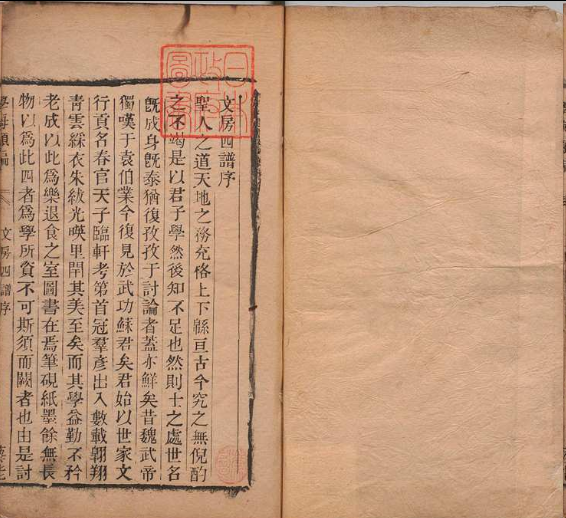 文房四譜序
聖人之道天地之務充格上下緜亘古今究之無倪酌
之不竭是以君子學然後知不足也然則士之處世名
旣成身旣泰猶復孜孜于討論者蓋亦鮮矣昔魏武帝
獨嘆于袁伯業今復見於武功蘇君矣君始以世家文
行貢名春官天子臨軒考第首冠羣彥出入數載翺翔
青雲綵衣朱紱光暎里閈其美至矣而其學益勤不矜
老成以此爲樂退食之室圖書在焉筆硯紙墨餘無長
物以爲此四者爲學所資不可斯須而闕者也由是討
學海類編
文房四譜序